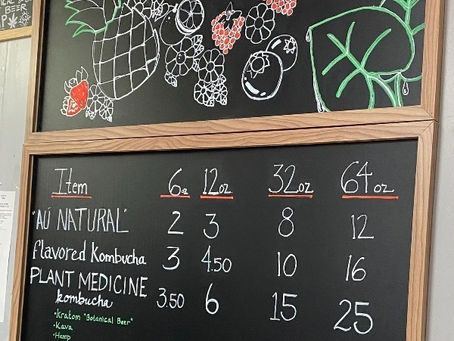 BEER
Item 6oz 12oz 32oz 64oz
'AÚ NATURAL' 2 3 8 12
flavored Kombucha 3 4.50 10 16
PLANT MEDICINE
kombucha 3.50 6 15 25
• Kratom "Botanical Beer"
• Kava
• Hemp